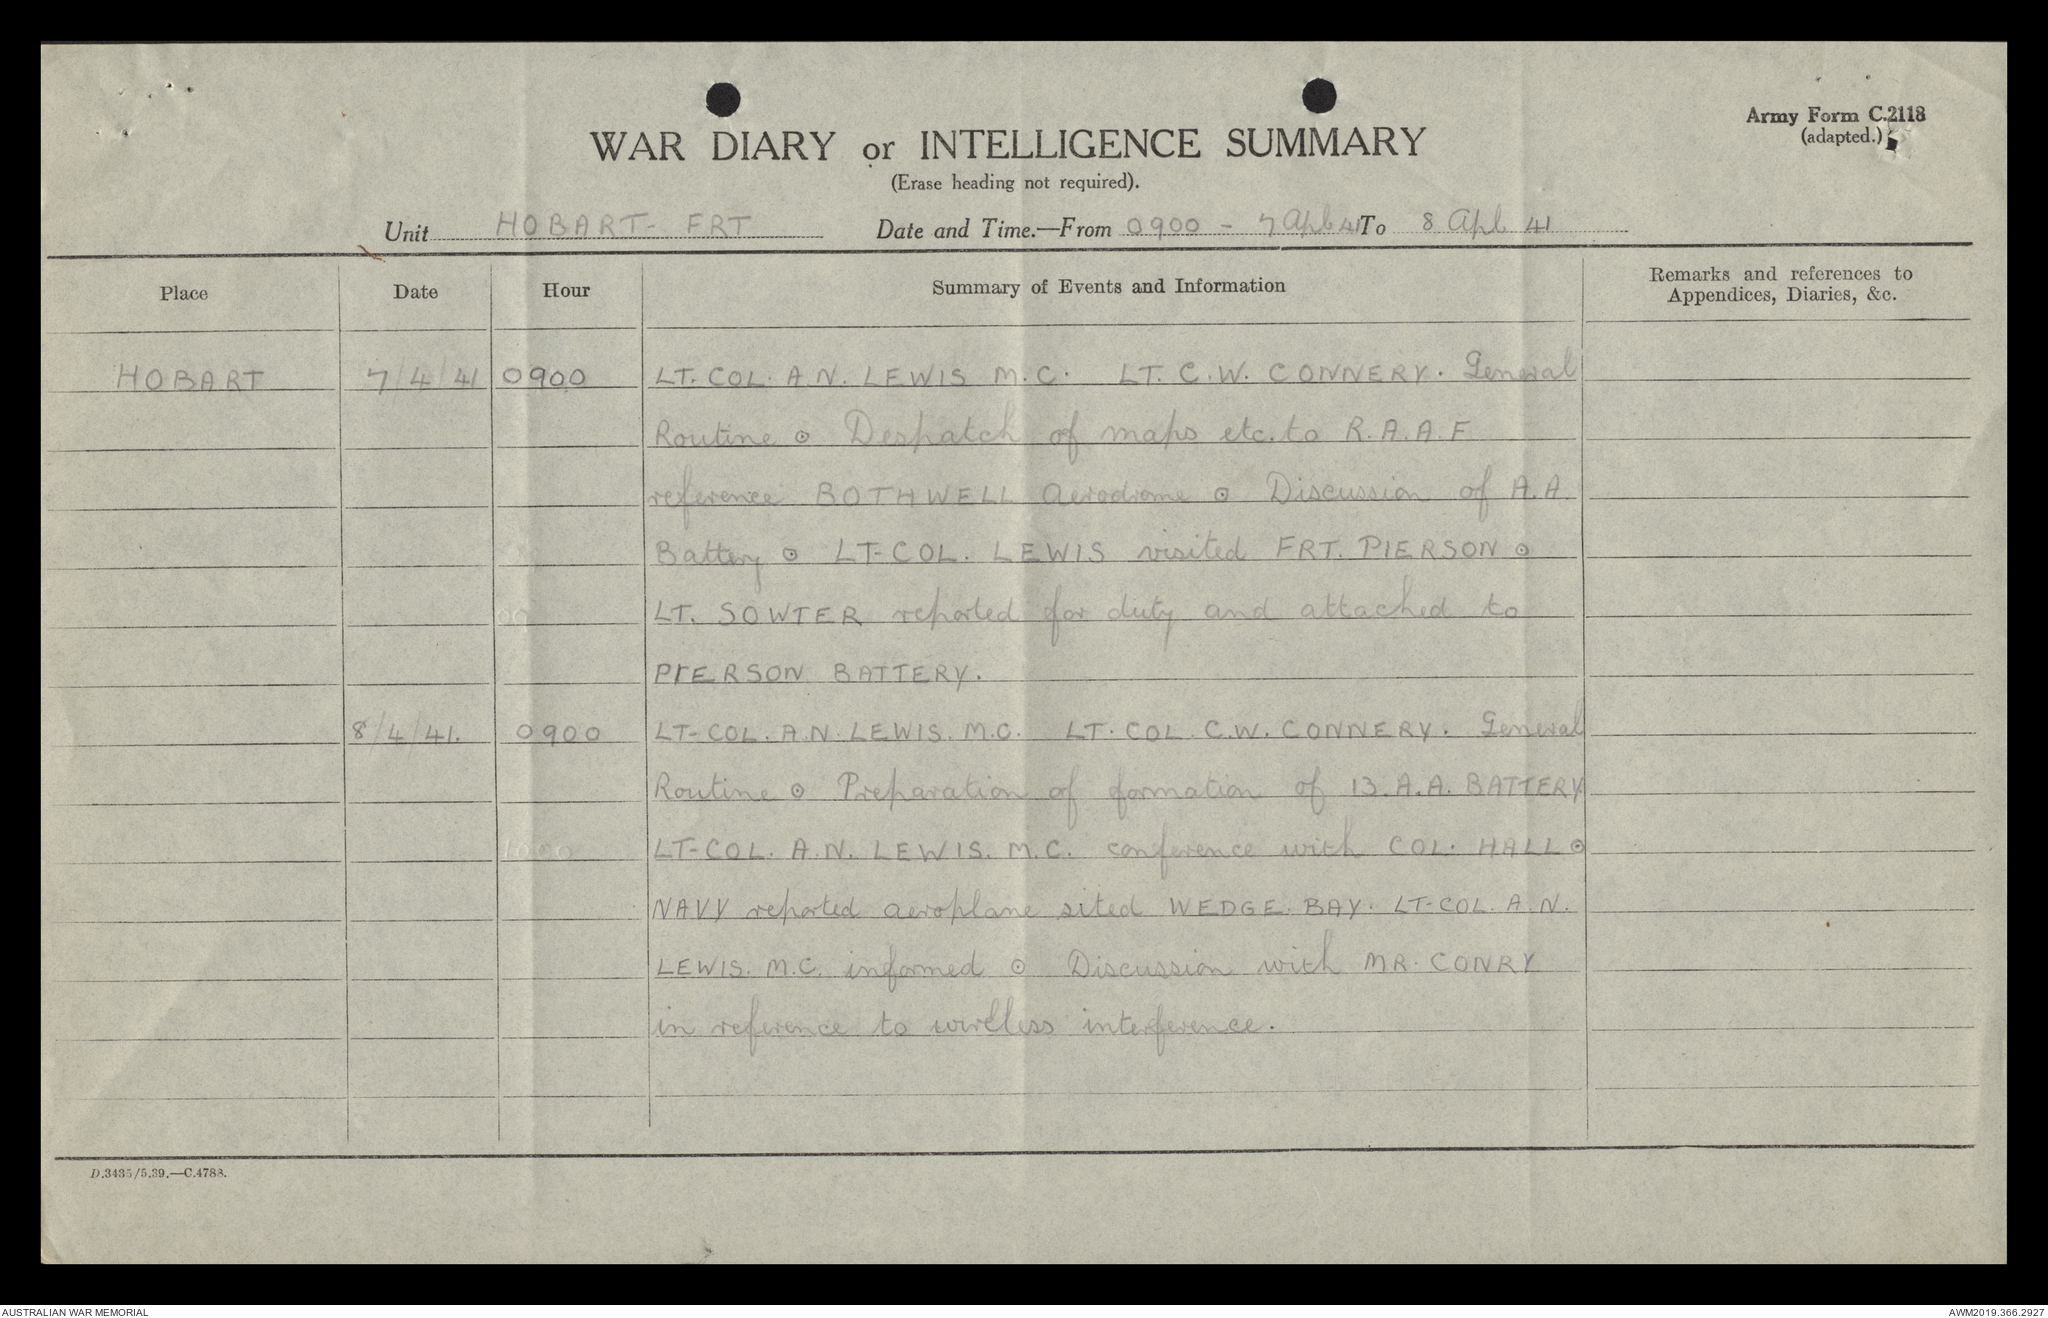 Army Form C.2118
(adapted.)
WAR DIARY or INTELLIGENCE SUMMARY
(Erase heading not required).
Unit HOBART- FRT Date and Time.—From 0900 - 7 Apl 41 To 8 Apl 41
Place Date Hour Summary of Events and Information Remarks and references to Appendices, Diaries, &c.
HOBART 7/4/41 0900 LT. COL. A.N. LEWIS M.C. LT. C.W. CONNERY. General
Routine ⊙ Despatch of maps etc. to R.A.A.F
reference BOTHWELL Aerodrome ⊙ Discussion of A.A.
Battery ⊙ LT-COL. LEWIS visited FRT. PIERSON ⊙
LT. SOWTER reported for duty and attached to
PIERSON BATTERY.
8/4/41. 0900 LT-COL. A.N. LEWIS. M.C. LT. COL C.W. CONNERY. General
Routine ⊙ Preparation of formation of 13. A.A. BATTERY
LT-COL. A.N. LEWIS. M.C. conference with COL. HALL ⊙
NAVY reported aeroplane sited WEDGE. BAY. LT-COL. A.N.
LEWIS. M.C. informed ⊙ Discussion with MR. CONRY
in reference to wireless interference.
D.3435/5.39.—C.4788.
AUSTRALIAN WAR MEMORIAL AWM2019.366.2927